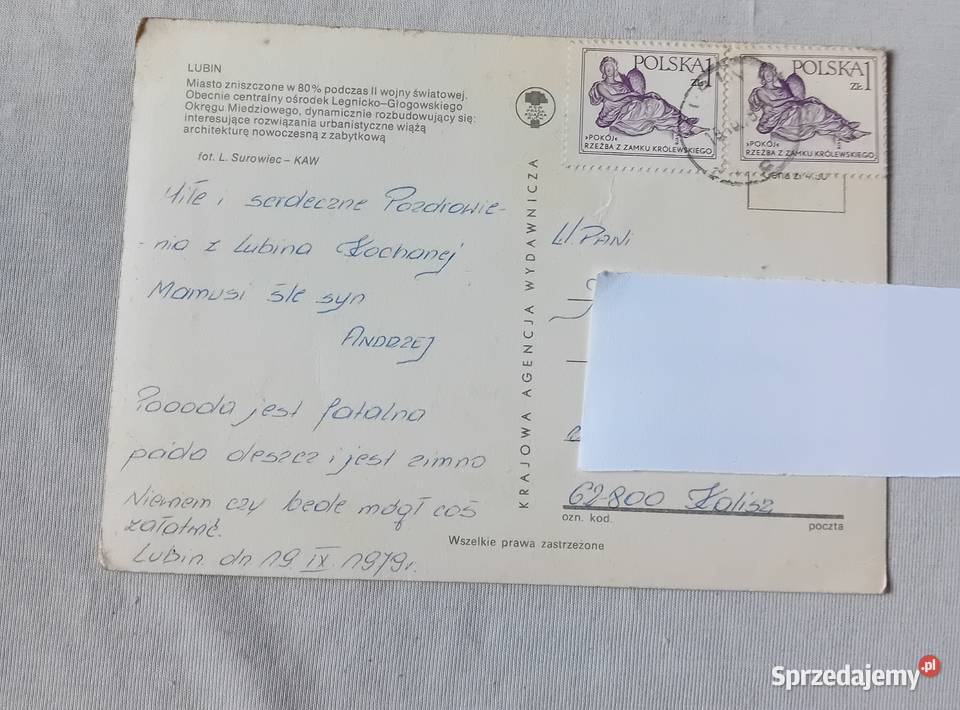 LUBIN
Miasto zniszczone w 80% podczas II wojny światowej.
Obecnie centralny ośrodek Legnicko-Głogowskiego
Okręgu Miedziowego, dynamicznie rozbudowujący się:
interesujące rozwiązania urbanistyczne wiążą
architekturę nowoczesną z zabytkową
fot. L. Surowiec – KAW
Miłe i serdeczne Pozdrowie-
- nia z Lubina Kochanej
Mamusi śle syn
ANDRZEJ
Pogoda jest fatalna
pada deszcz i jest zimno
Niewiem czy bede mógł coś
załatwić.
Lubin dn 19 IX 1979r.
KRAJOWA AGENCJA WYDAWNICZA
POLSKA 1
ZŁ
»POKÓJ«
RZEŹBA Z ZAMKU KRÓLEWSKIEGO
POLSKA 1
ZŁ
»POKÓJ«
RZEŹBA Z ZAMKU KRÓLEWSKIEGO
Cena zł
W. PANI
62-800 Kalisz
ozn. kod.
poczta
Wszelkie prawa zastrzeżone
Sprzedajemy.pl